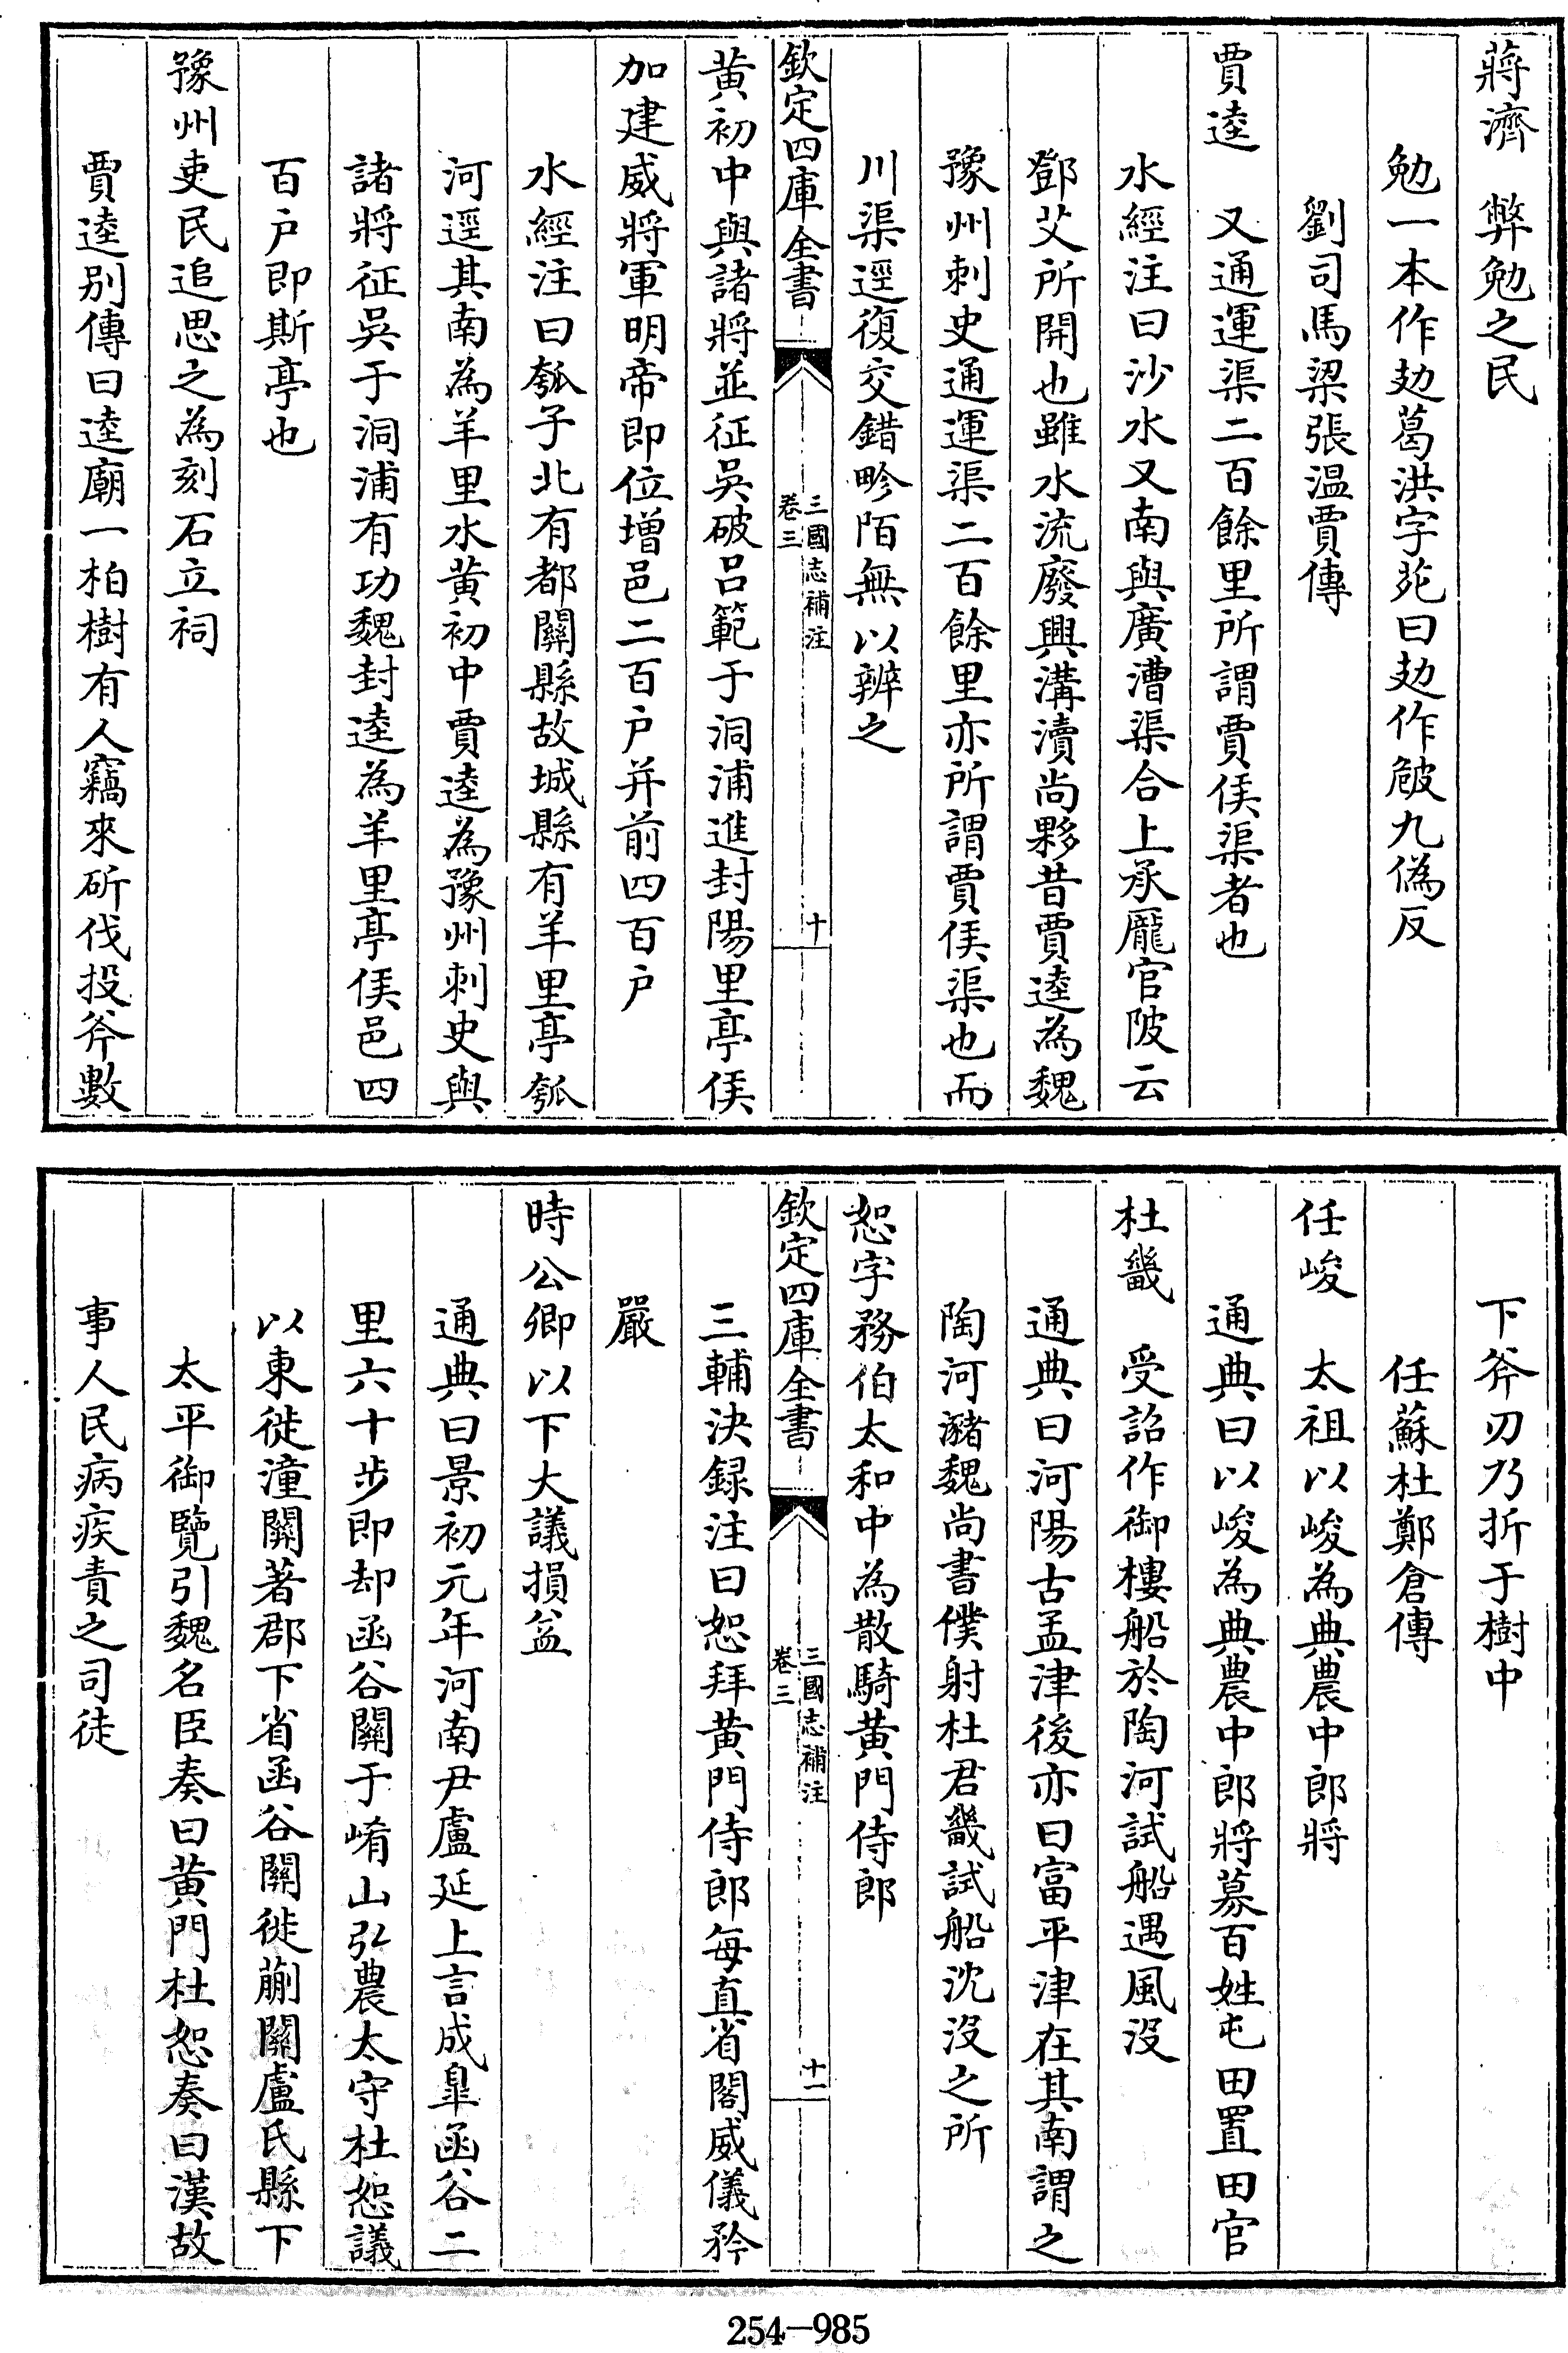 蔣濟　弊勉之民
勉一本作攰葛洪字苑曰攰作㱟九偽反
劉司馬梁張温賈傳
賈逵　又通運渠二百餘里所謂賈侯渠者也
水經注曰沙水又南與廣漕渠合上承龎官陂云
鄧艾所開也雖水流廢興溝瀆尚夥昔賈逵為魏
豫州刺史通運渠二百餘里亦所謂賈侯渠也而
川渠逕復交錯畛陌無以辨之
欽定四庫全書
三國志補注
卷三
十
黄初中與諸將並征吳破吕範于洞浦進封陽里亭侯
加建威將軍明帝即位增邑二百户并前四百户
水經注曰瓠子北有都關縣故城縣有羊里亭瓠
河逕其南為羊里水黄初中賈逵為豫州刺史與
諸將征吳于洞浦有功魏封逵為羊里亭侯邑四
百户即斯亭也
豫州吏民追思之為刻石立祠
賈逵别傳曰逵廟一柏樹有人竊來斫伐投斧數
下斧刃乃折于樹中
任蘇杜鄭倉傳
任峻　太祖以峻為典農中郎將
通典曰以峻為典農中郎將募百姓屯田置田官
杜畿　受詔作御樓船於陶河試船遇風没
通典曰河陽古孟津後亦曰富平津在其南謂之
陶河瀦魏尚書僕射杜君畿試船沈没之所
恕字務伯太和中為散騎黄門侍郎
欽定四庫全書
三國志補注
卷三
十一
三輔決録注曰恕拜黄門侍郎每直省閣威儀矜
嚴
時公卿以下大議損益
通典曰景初元年河南尹盧延上言成臯函谷二
里六十步即却函谷關于崤山弘農太守杜恕議
以東徙潼關著郡下省函谷關徙蒯關盧氏縣下
太平御覽引魏名臣奏曰黄門杜恕奏曰漢故
事人民病疾責之司徒
254—985